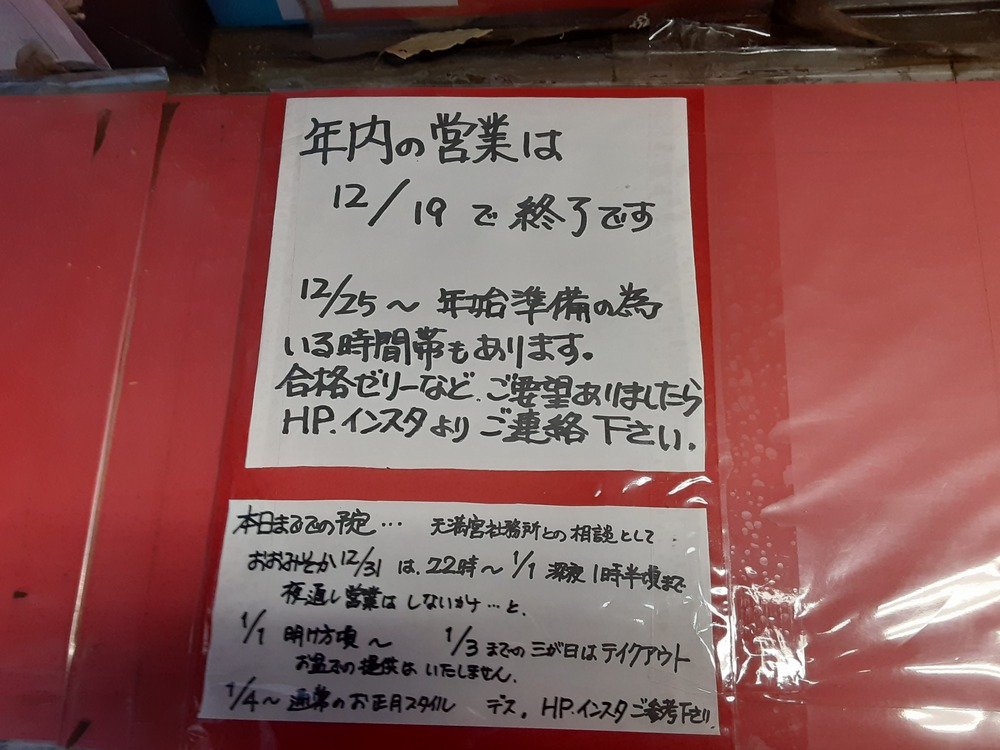 年内の営業は
12/19 で 終了です
12/25～ 年始準備の為
いる時間帯もあります。
合格ゼリーなど、ご要望ありましたら
HP.インスタより ご連絡下さい.
本日までの予定… 天満宮社務所との相談として
おおみそか12/31 は、22時～1/1 深夜1時半頃まで
夜通し営業は しないかナ…と、
1/1 明け方頃～ 1/3までの三が日はテイクアウト
お皿での提供は いたしません.
1/4～ 通常のお正月スタイル デス。 HP.インスタご参考下さい